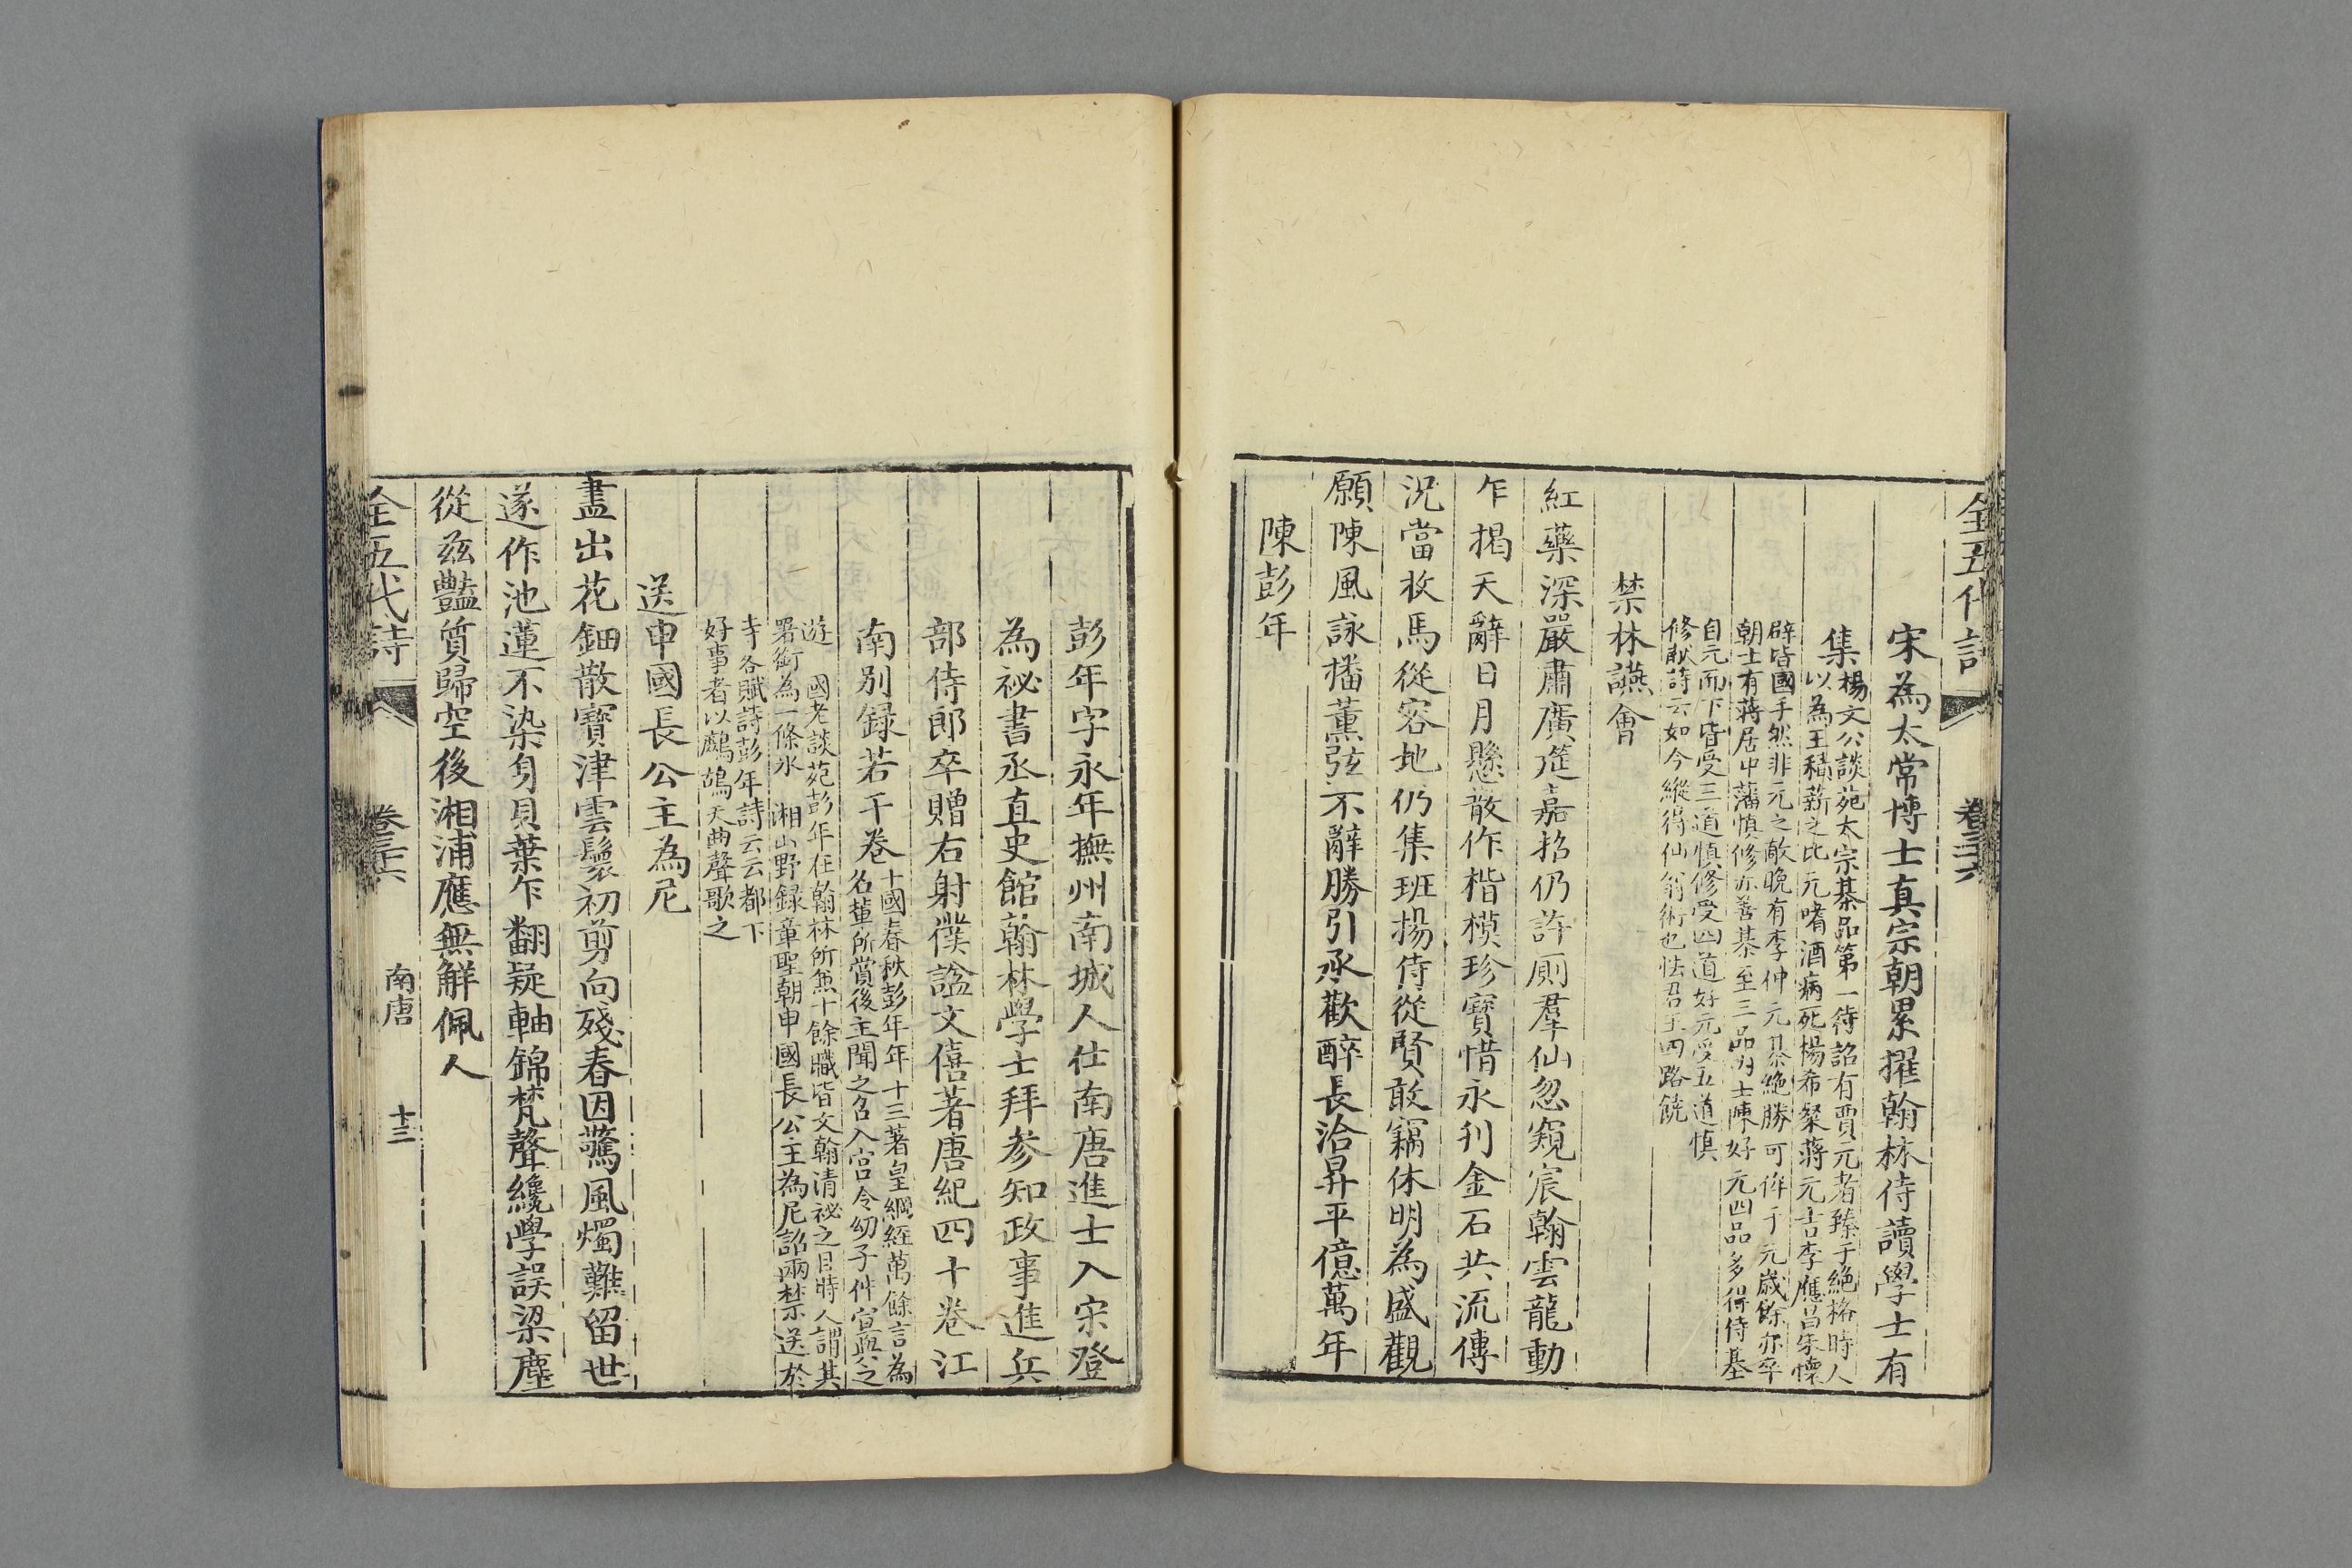 全五代詩
卷三十六
宋為太常博士真宗朝累擢翰林侍讀學士有
集
楊文公談苑太宗棊品第一待詔有賈元者臻于絶格時人
以為王積薪之比元嗜酒病死楊希粲蔣元吉李應昌朱懷
辟皆國手然非元之敵晚有李仲元棊絶勝可侔于元歲餘亦卒
朝士有蔣居中潘慎修亦善棊至三品内士陳好元四品多得侍棊
自元而下皆受三道慎修受四道好元受五道慎
修献詩云如今縱得仙翁術也怯君王四路饒
禁林讌會
紅藥深嚴肅廣筵嘉招仍許厠羣仙忽窺宸翰雲龍動
乍揭天辭日月懸散作楷模珍寶惜永刊金石共流傳
況當牧馬從容地仍集班揚侍從賢敢竊休明為盛觀
願陳風詠播薰弦不辭勝引承歡醉長洽昇平億萬年
陳彭年
彭年字永年撫州南城人仕南唐進士入宋登
為祕書丞直史館翰林學士拜參知政事進兵
部侍郎卒贈右射僕諡文僖著唐紀四十卷江
南別録若干卷
十國春秋彭年年十三著皇綱經萬餘言為
名輩所賞後主聞之召入宫令幼子仵宣與之
遊 國老談苑彭年在翰林所兼十餘職皆文翰清祕之目時人謂其
署銜為一條氷 湘山野録章聖朝申國長公主為尼詔兩禁送於
寺各賦詩彭年詩云云都下
好事者以鷓鴣天曲聲歌之
送申國長公主為尼
盡出花鈿散寶津雲鬟初剪向殘春因驚風燭難留世
遂作池蓮不染身貝葉乍翻疑軸錦梵聲纔學誤梁塵
從茲豔質歸空後湘浦應無解佩人
全五代詩
卷三十六
南唐
十三